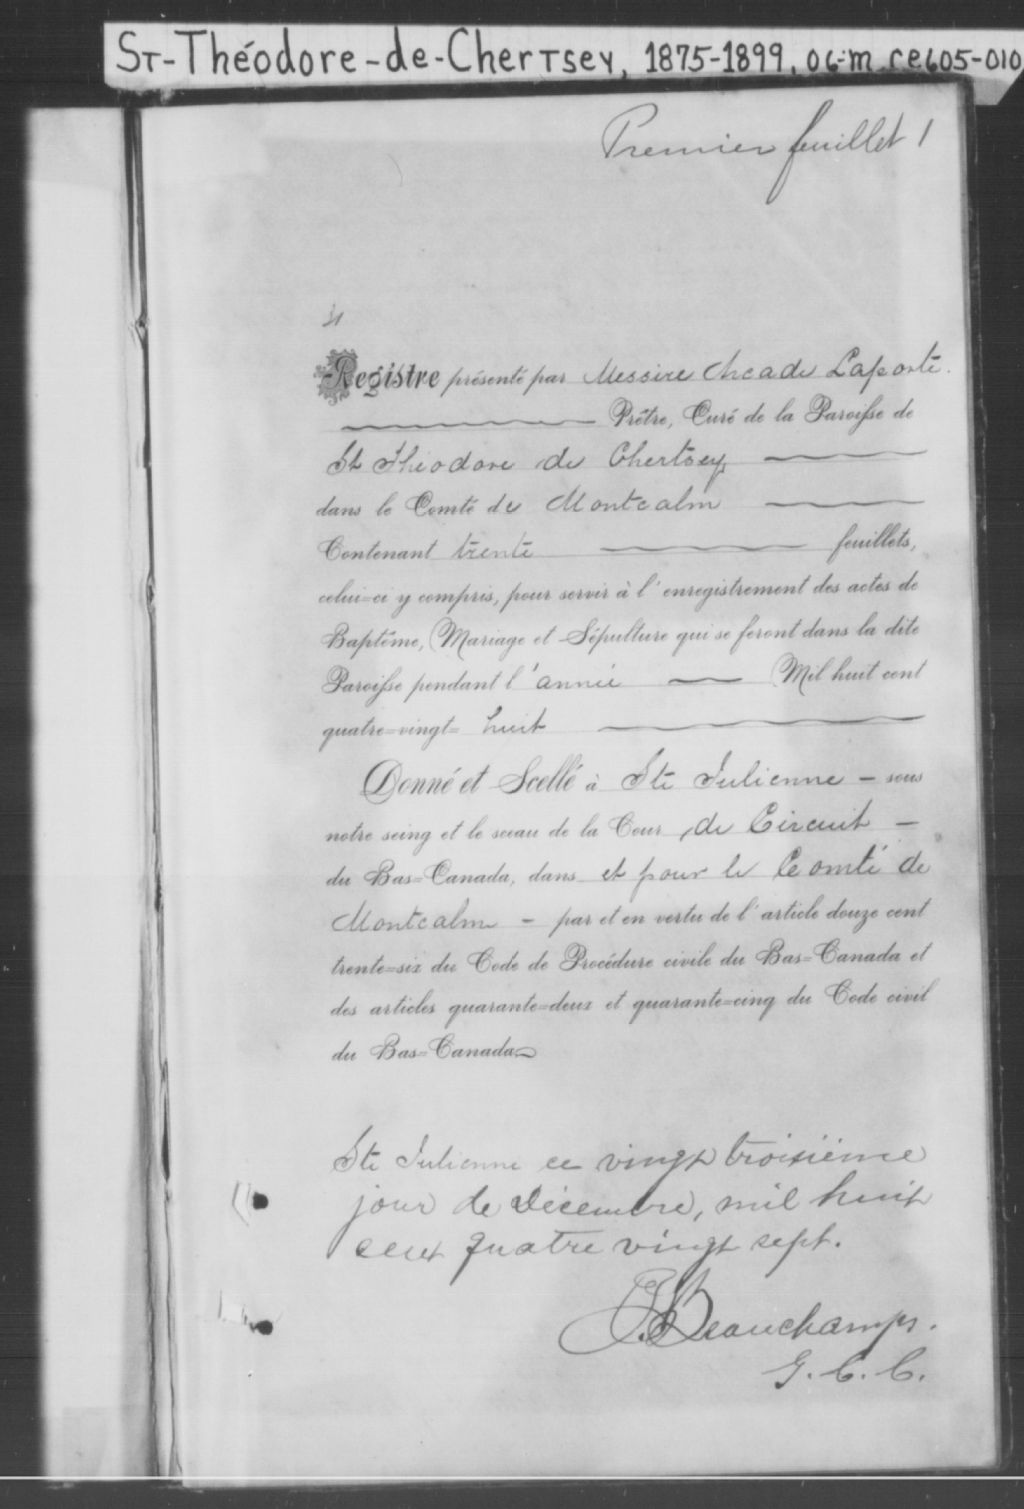 ST-Théodore-de-Chertsey, 1875-1899, 06-m ce605-010
Premier feuillet 1
Registre présenté par Messire Arcade Laporte.
Prêtre, Curé de la Paroisse de
St Théodore de Chertsey
dans le Comté de Montcalm
Contenant trente feuillets,
celui-ci y compris, pour servir à l'enregistrement des actes de
Baptême, Mariage et Sépulture qui se feront dans la dite
Paroisse pendant l'année Mil huit cent
quatre-vingt-huit
Donné et Scellé à Ste Julienne - sous
notre seing et le sceau de la Cour de Circuit -
du Bas-Canada, dans et pour le Comté de
Montcalm - par et en vertu de l'article douze cent
trente-six du Code de Procédure civile du Bas-Canada et
des articles quarante-deux et quarante-cinq du Code civil
du Bas-Canada
Ste Julienne ce vingt troisième
jour de Décembre, mil huit
cent quatre vingt sept.
Beauchamps.
G. C. C.